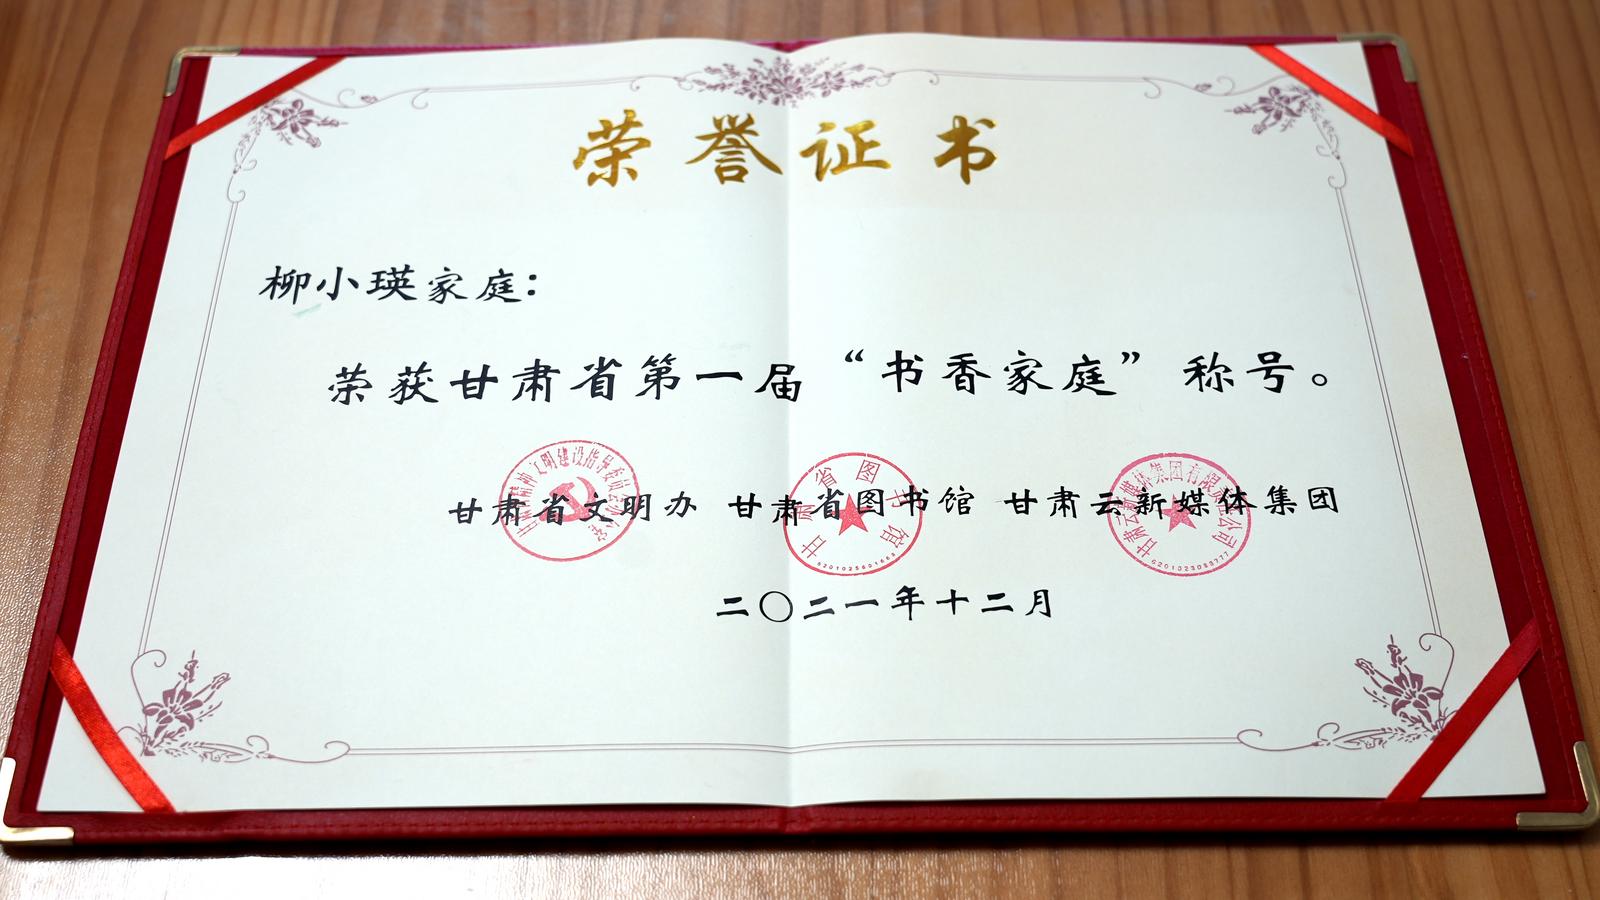 荣誉证书
柳小瑛家庭：
荣获甘肃省第一届“书香家庭”称号。
甘肃省文明办 甘肃省图书馆 甘肃云新媒体集团
甘肃省图书馆
二〇二一年十二月